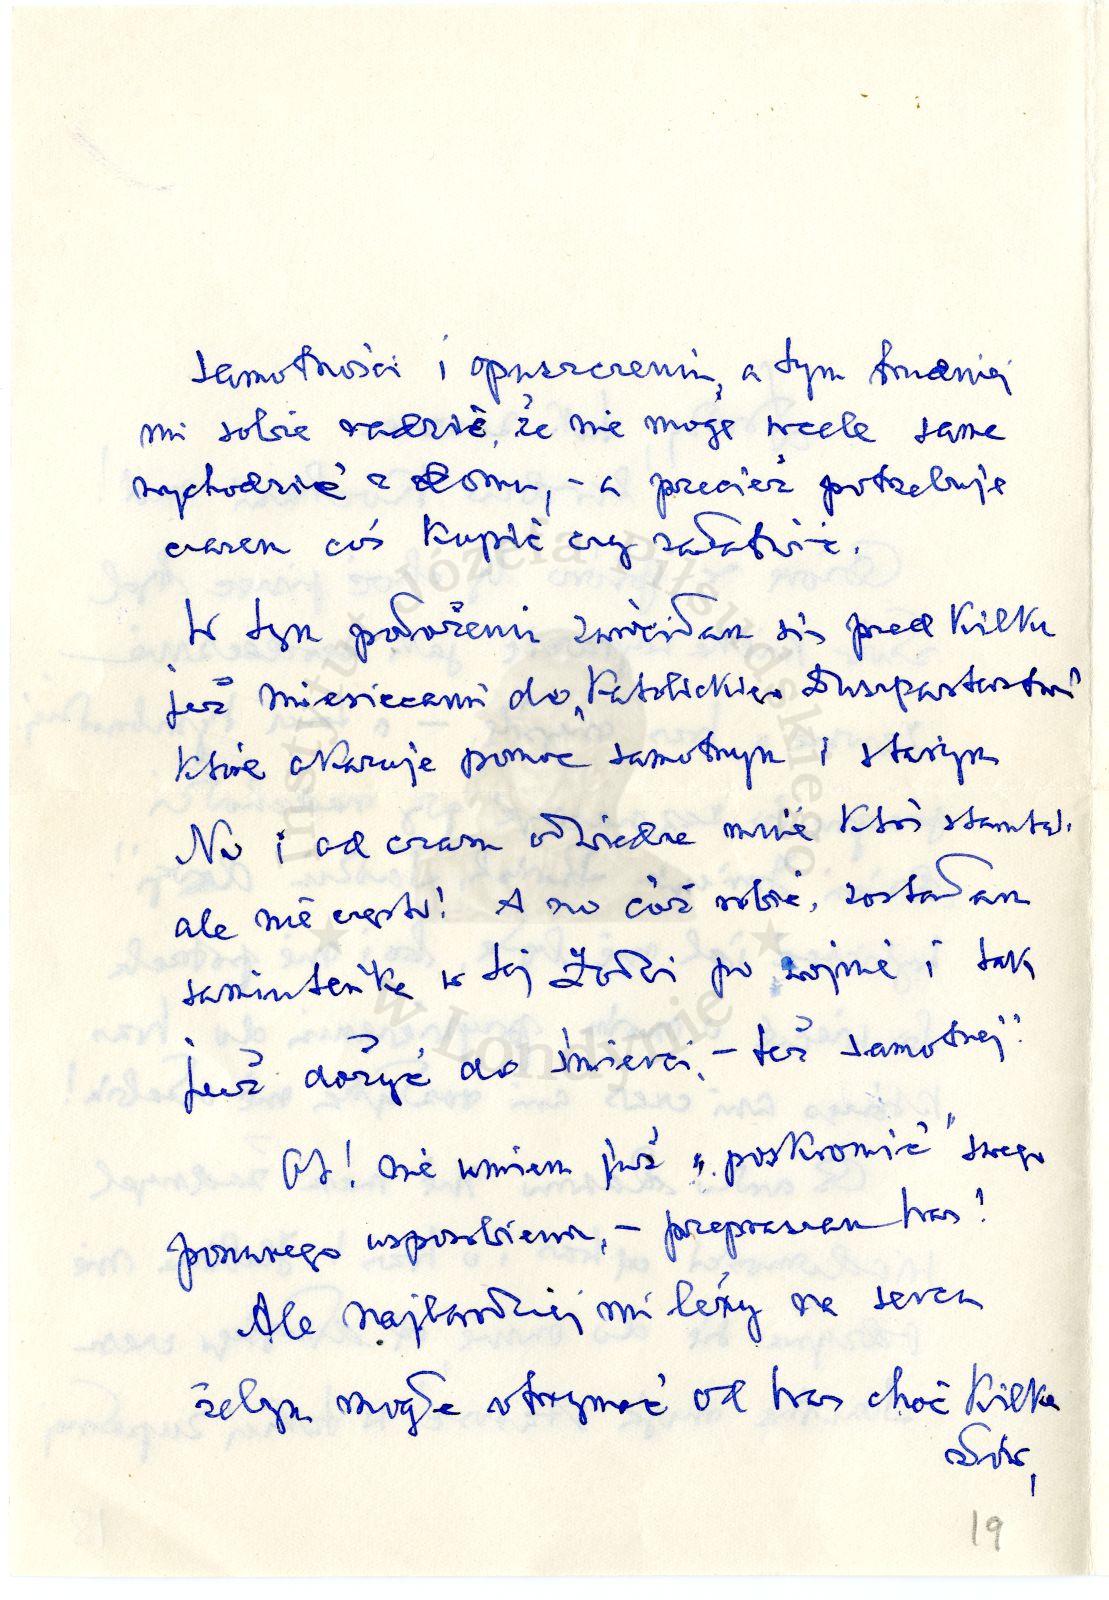 samotności i opuszczeniu, a tym trudniej
mi sobie radzić, że nie mogę wcale sama
wychodzić z domu, – a przecież potrzebuję
czasem coś kupić czy załatwić.
W tym położeniu zwróciłam się przed kilku
już miesiącami do „Katolickiego Duszpasterstwa"
które okazuje pomoc samotnym i starym
No i od czasu odwiedza mnie ktoś stamtąd.
ale nie często! A no cóż robić, zostałam
samiuteńka w tej Łodzi po wojnie i tak
już dożyć do śmierci, – też samotnej".
Ot! nie umiem już „poskromić" swego
ponurego usposobienia, – przepraszam Was!
Ale najbardziej mi leży na sercu
żebym mogła otrzymać od Was choć kilka
słów,
19
Instytut Józefa Piłsudskiego
★ w Londynie ★